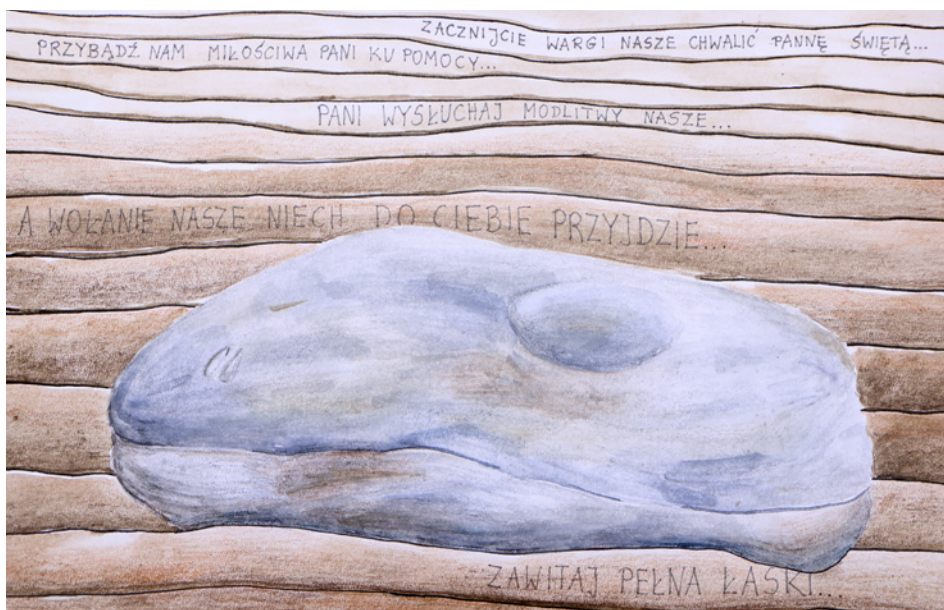 ZACZNIJCIE WARGI NASZE CHWALIĆ PANNĘ ŚWIĘTĄ...
PRZYBĄDŹ NAM MIŁOŚCIWA PANI KU POMOCY...
PANI WYSŁUCHAJ MODLITWY NASZE...
A WOŁANIE NASZE NIECH DO CIEBIE PRZYJDZIE...
ZAWITAJ PEŁNA ŁASKI...